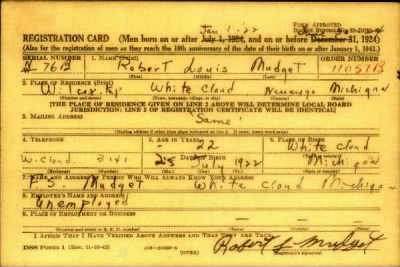 Jan 1-22
REGISTRATION CARD (Men born on or after July 1, 1924, and on or before December 31, 1924)
FORM APPROVED
(Also for the registration of men as they reach the 18th anniversary of the date of their birth on or after January 1, 1943.)
SERIAL NUMBER 1. NAME (Print) ORDER NUMBER
N 76B Robert Louis Mudget 11051B
(First) (Middle) (Last)
2. PLACE OF RESIDENCE (Print)
White Cloud Newaygo Michigan
(Number and street) (Town, township, village, or city) (County) (State)
[THE PLACE OF RESIDENCE GIVEN ON LINE 2 ABOVE WILL DETERMINE LOCAL BOARD
JURISDICTION; LINE 2 OF REGISTRATION CERTIFICATE WILL BE IDENTICAL]
3. MAILING ADDRESS
Same
(Mailing address if other than place indicated on line 2. If same, insert word same)
4. TELEPHONE 5. AGE IN YEARS 6. PLACE OF BIRTH
22 White Cloud
DATE OF BIRTH
W-Cloud. 28 July 1922 Michigan
7. NAME AND ADDRESS OF PERSON WHO WILL ALWAYS KNOW YOUR ADDRESS
F.S. Mudget White Cloud Michigan
8. EMPLOYER'S NAME AND ADDRESS
Unemployed
9. PLACE OF EMPLOYMENT OR BUSINESS
(Number and street or R. F. D. number) (Town) (County) (State)
I AFFIRM THAT I HAVE VERIFIED ABOVE ANSWERS AND THAT THEY ARE TRUE.
DSS Form 1 (OVER) Robert L Mudget